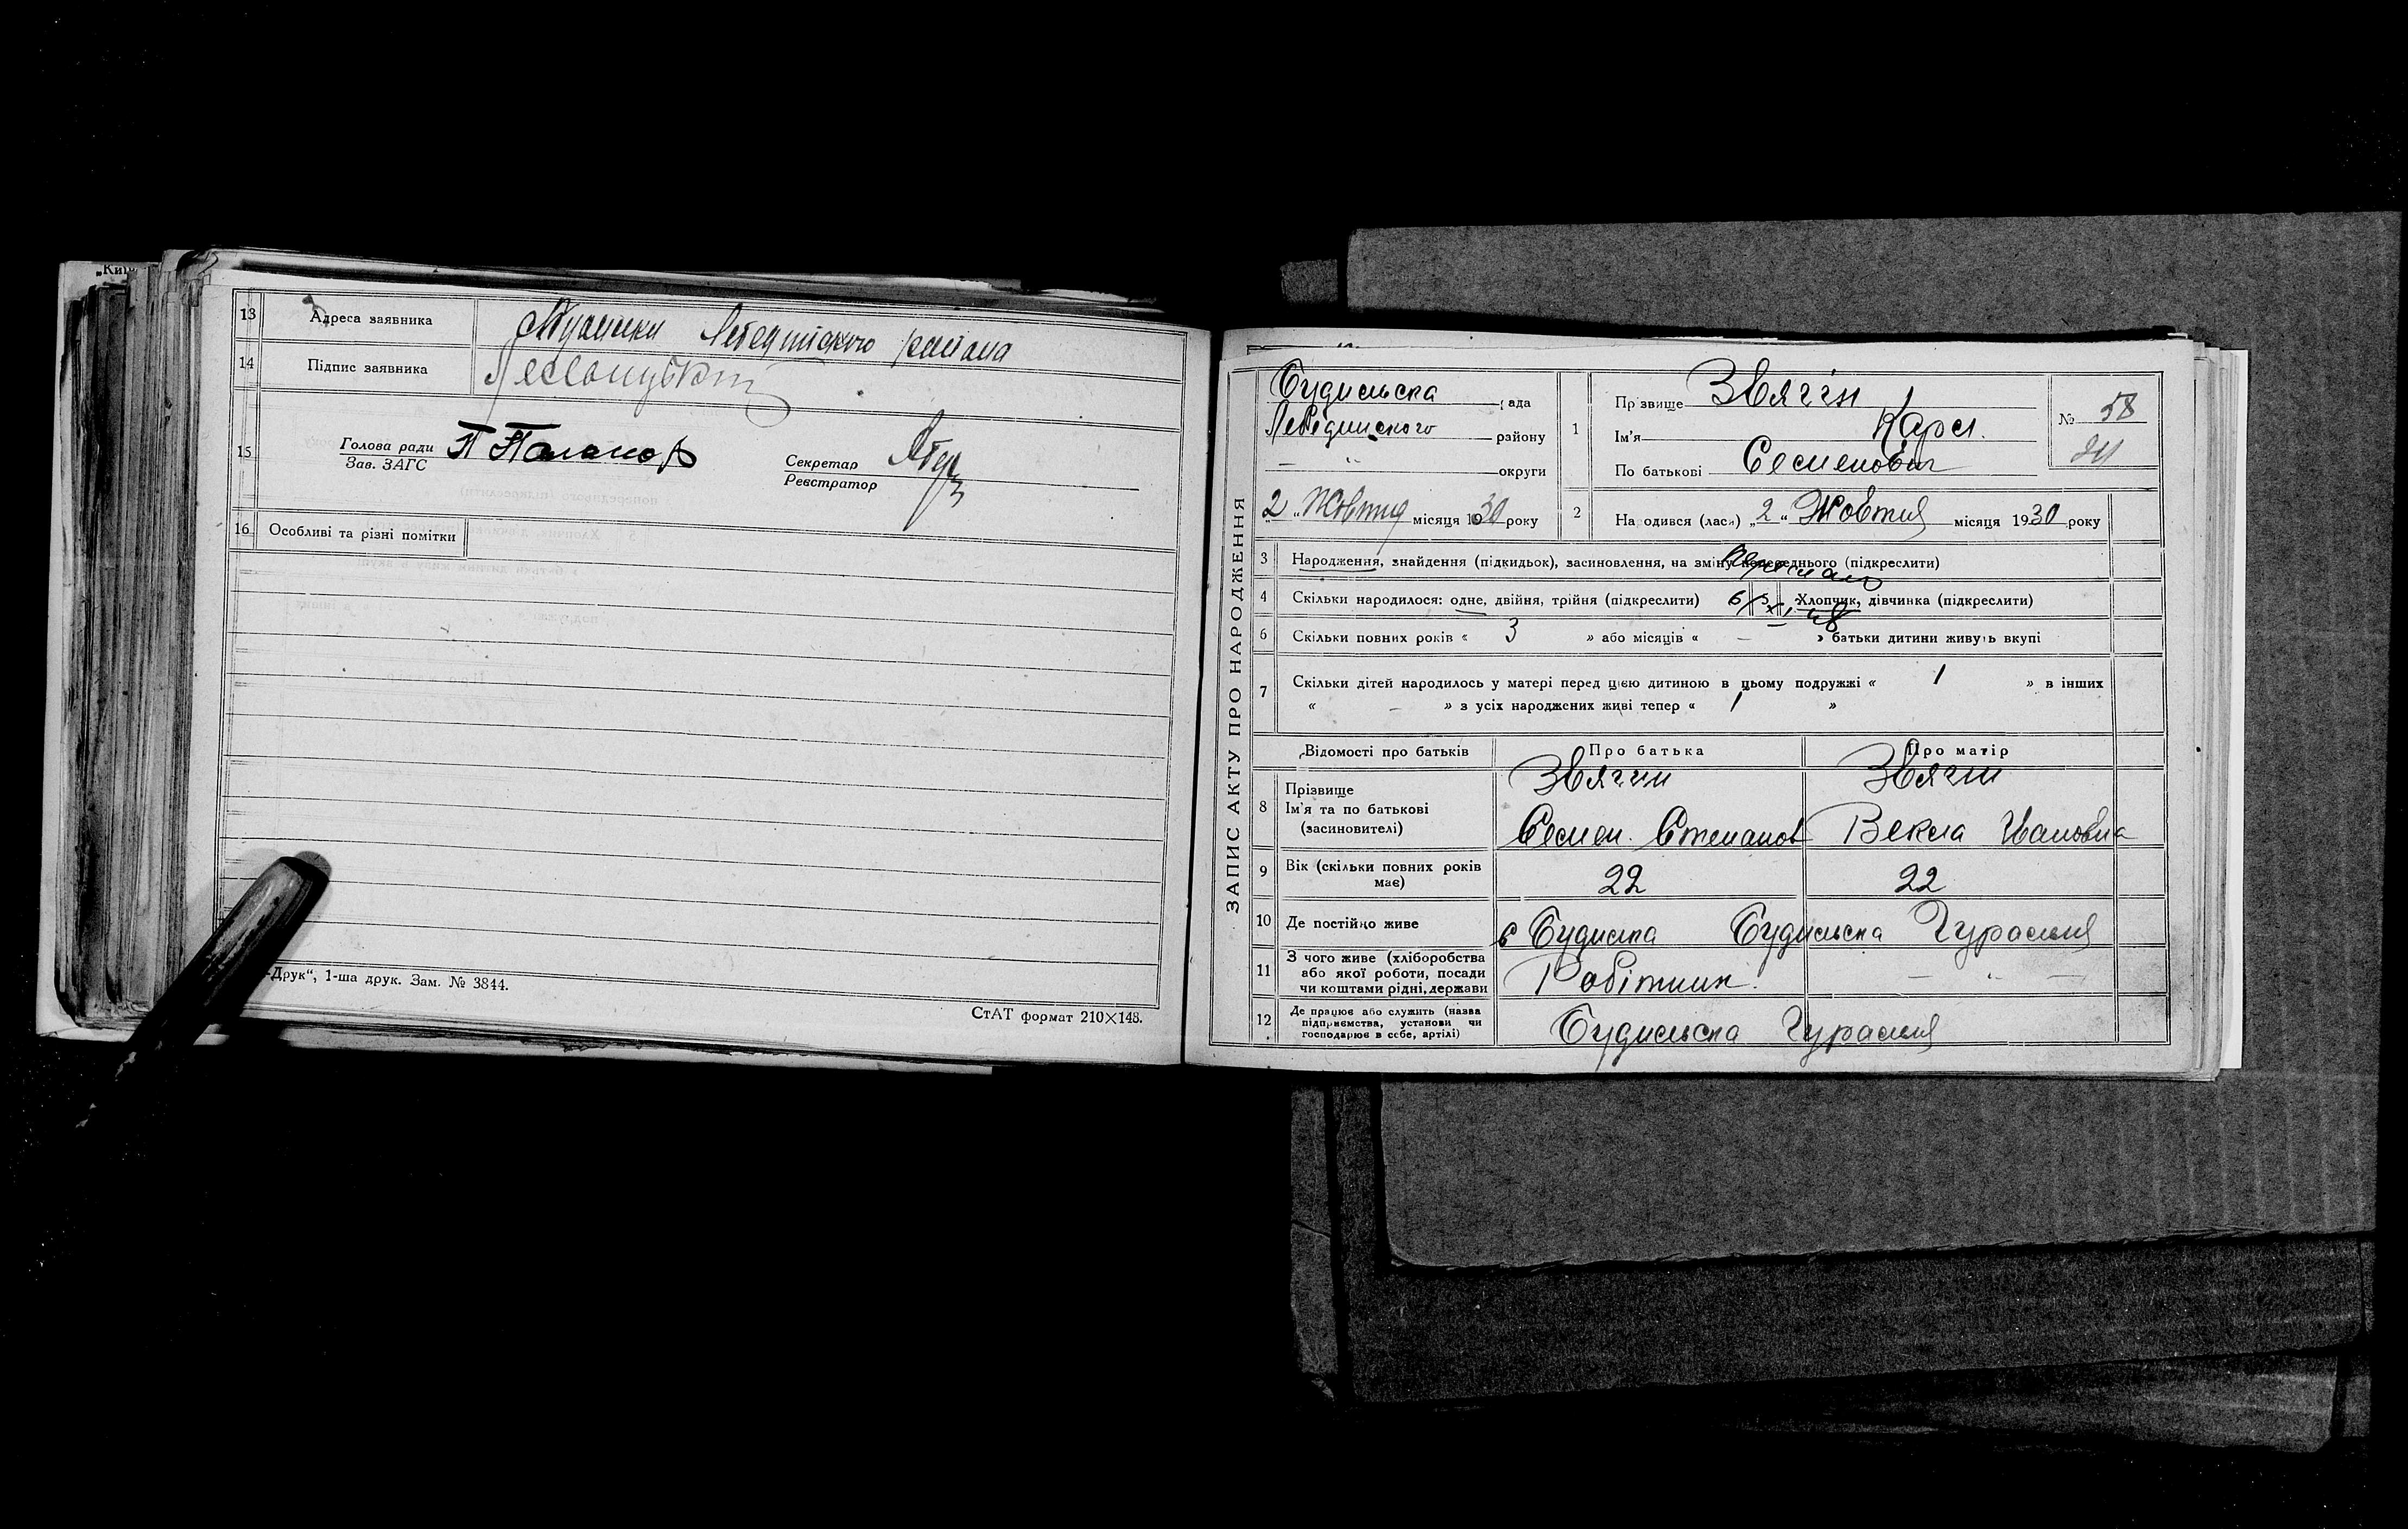 „Київ
13 Адреса заявника
Лебединского району
14 Підпис заявника
15 Голова ради
Зав. ЗАГС
Секретар
Реєстратор
16 Особливі та різні помітки
-Друк“, 1-ша друк. Зам. № 3844.
СтАТ формат 210×148.
ЗАПИС АКТУ ПРО НАРОДЖЕННЯ
Будильска рада
Лебединского району
— " — округи
„2„ Жовтня місяця 1930 року
1 Прізвище Звягін
Ім'я Карл.
По батькові Семенович
№ 58
2 Народився (лась) „2“ Жовтня місяця 1930 року
3 Народження, знайдення (підкидьок), засиновлення, на зміну попереднього (підкреслити)
4 Скільки народилося: одне, двійня, трійня (підкреслити)
5 Хлопчик, дівчинка (підкреслити)
6 Скільки повних років « 3 » або місяців « — » батьки дитини живуть вкупі
7 Скільки дітей народилось у матері перед цією дитиною в цьому подружжі « 1 » в інших
« — » з усіх народжених живі тепер « 1 »
Відомості про батьків Про батька Про матір
8 Прізвище
Ім'я та по батькові
(засиновителі)
Звягин
Семен. Степанов
Звягин
Векла Ивановна
9 Вік (скільки повних років має) 22 22
10 Де постійно живе
с Будилка Будильска Гуральня
11 З чого живе (хліборобства або якої роботи, посади чи коштами рідні, держави
Робітник. — " —
12 Де працює або служить (назва підприємства, установи чи господарює в себе, артілі)
Будильска Гуральня